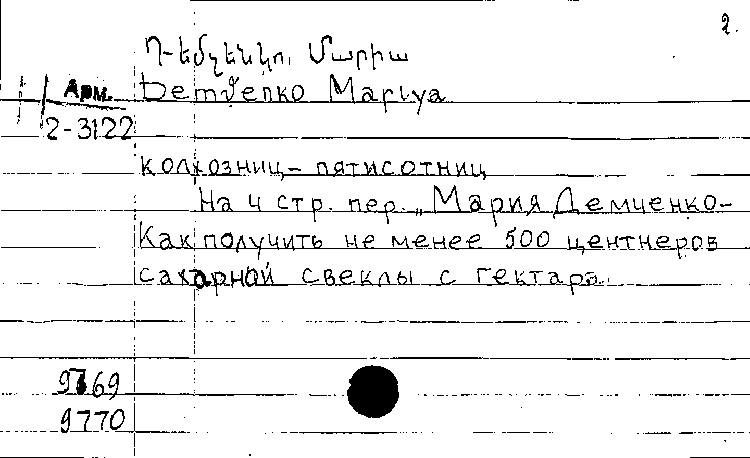 2.
Դեմչենկո, Մարիա
Арм. Demčenko Mariya
2-3122
колхозниц-пятисотниц
На 4 стр. пер. „Мария Демченко-
Как получить не менее 500 центнеров
сахарной свеклы с гектара.
9769
9770